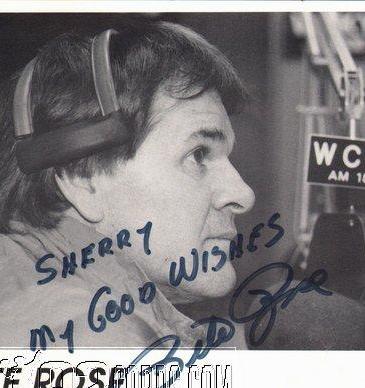 WC
AM 10
SHERRY
MY GOOD WISHES
Pete Rose
TE ROSE